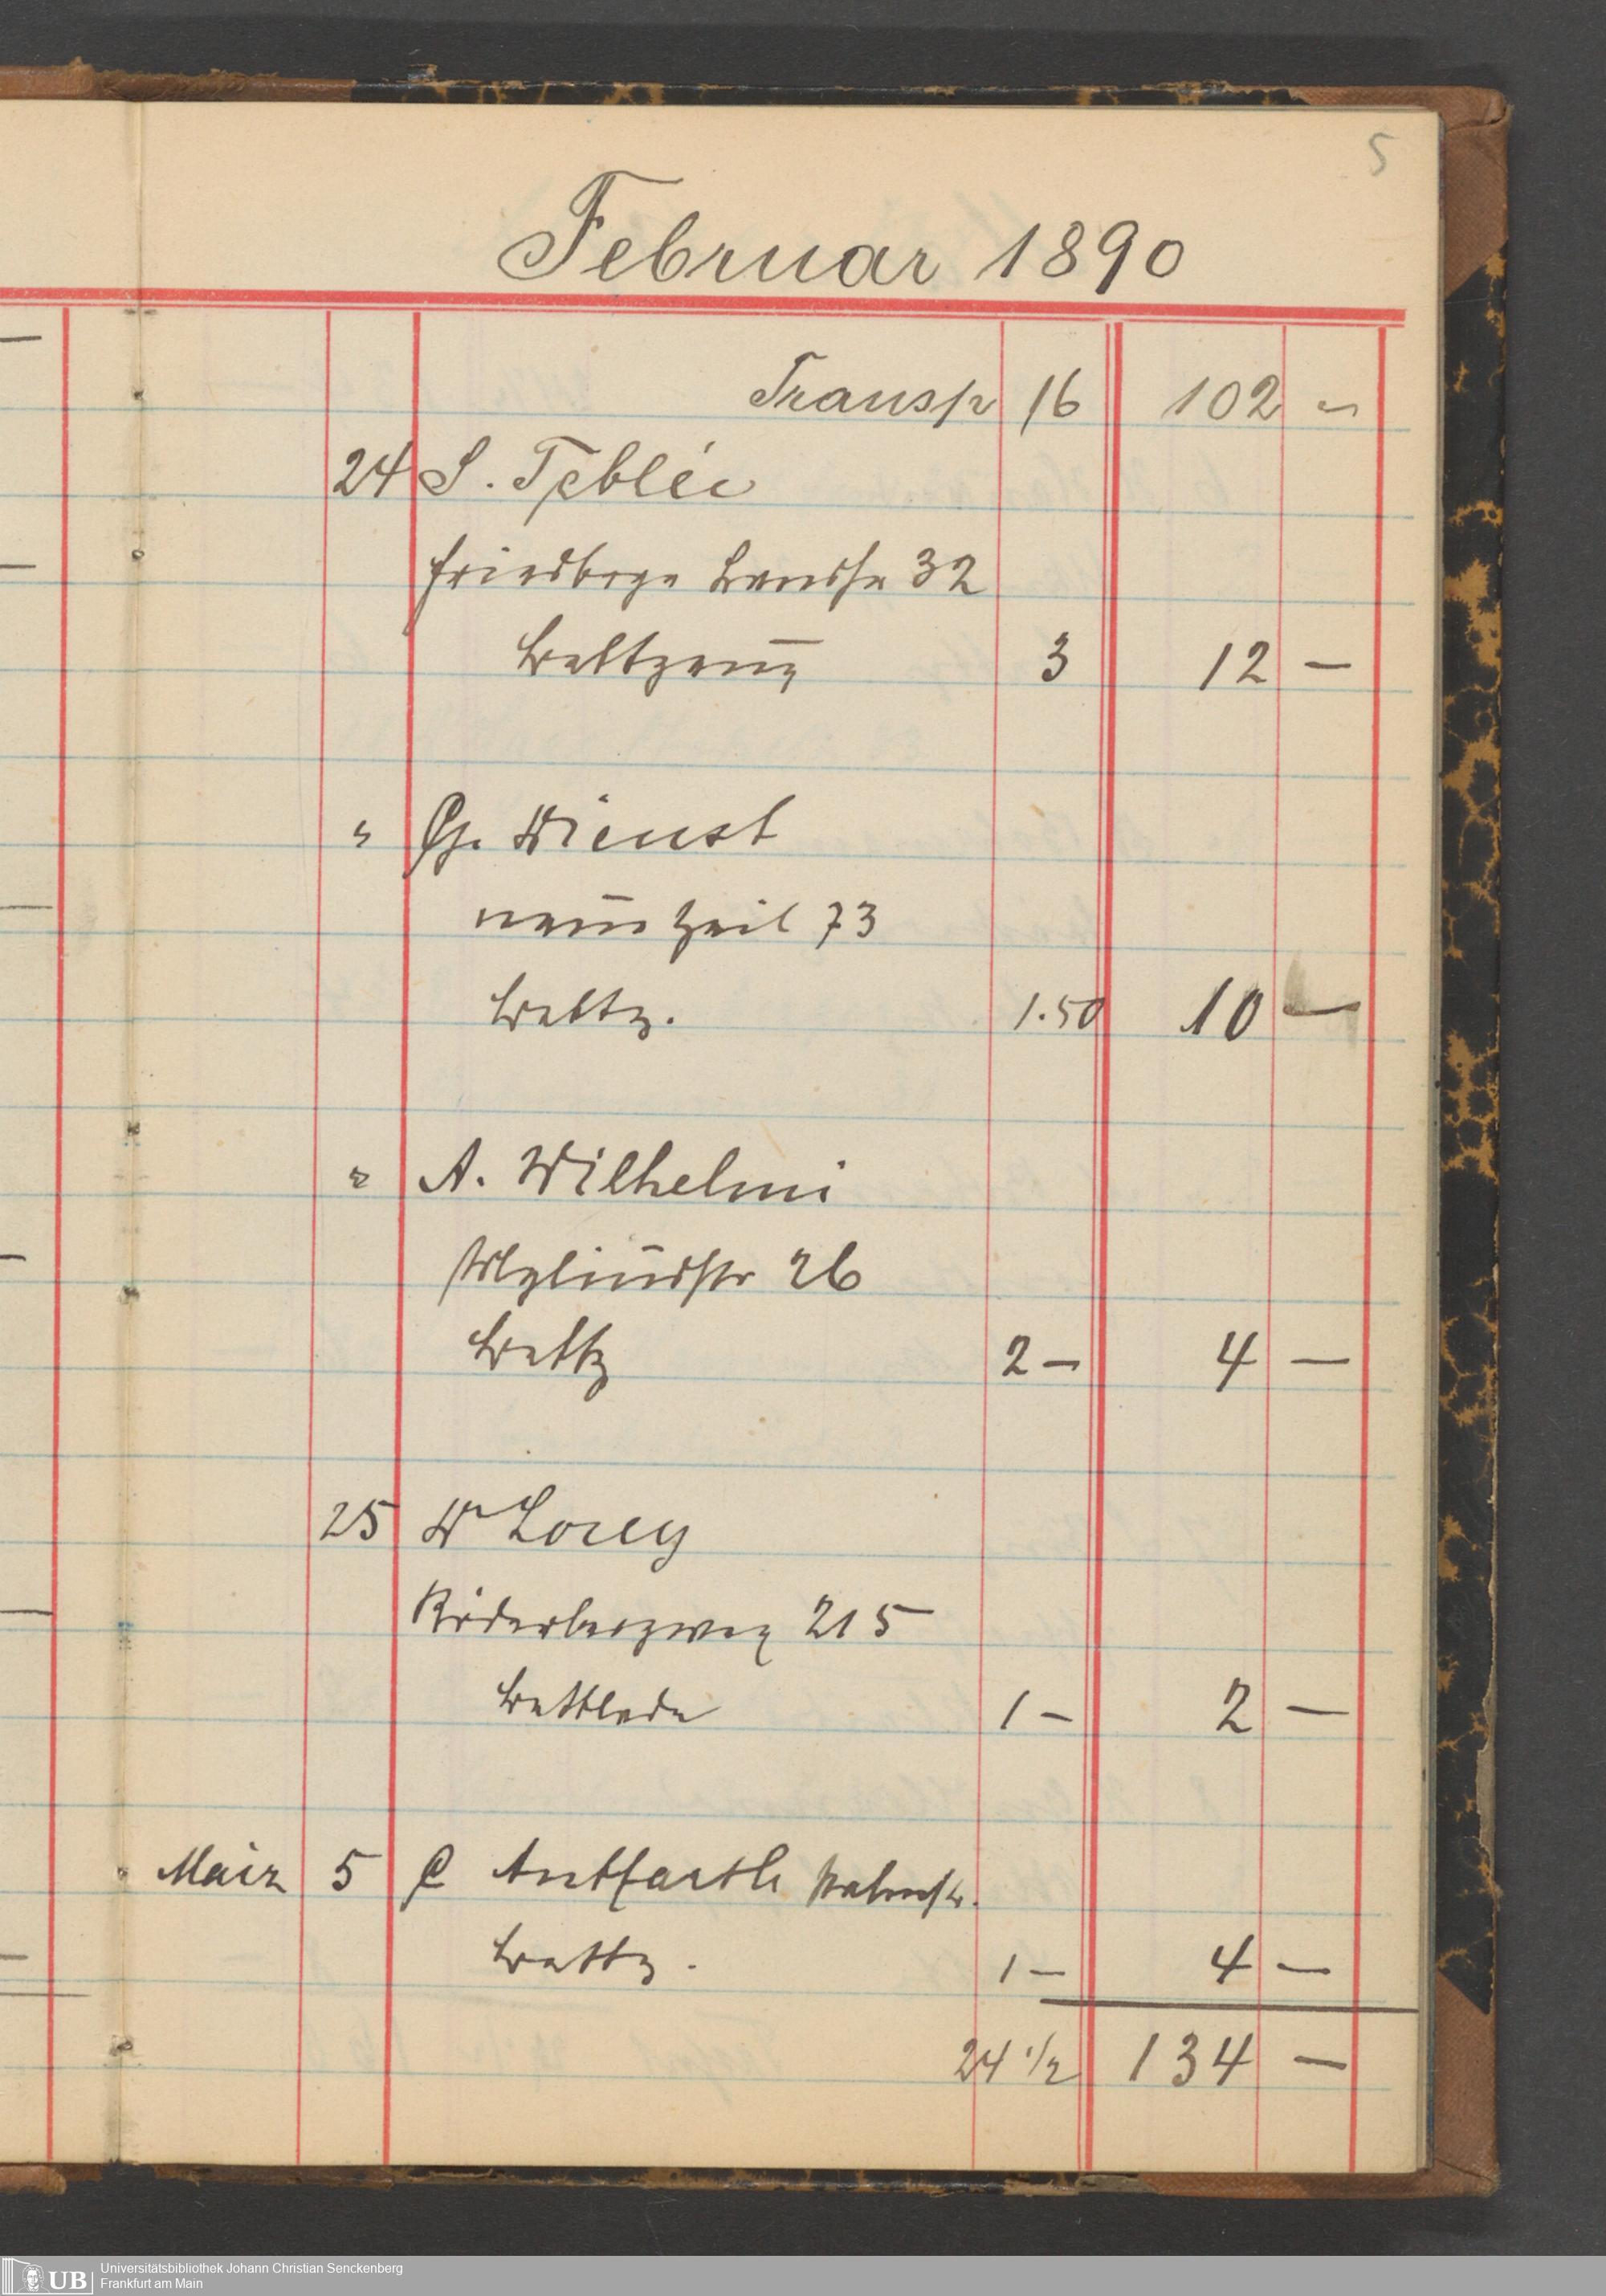 5
Februar 1890
Transp 16 102 —
24 S.
Friedbrge Landstr 32
Bettzeug 3 12 —
" Gg. Dienst
neue Zeil 73
Bettz. 1.50 10 —
" A. Wilhelmi
26
Bettz 2 — 4 —
25 W Lorey
Röderbergweg 215
Bettlade 1 — 2 —
März 5 C
Bettz. 1 — 4 —
24 1/2 134 —
UB Universitätsbibliothek Johann Christian Senckenberg
Frankfurt am Main